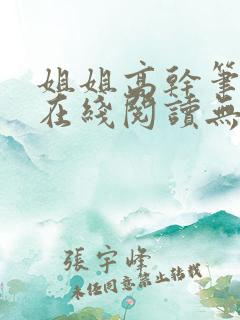 姐姐高幹筆
在綫閱讀無
張宇峰
未经同意禁止转载